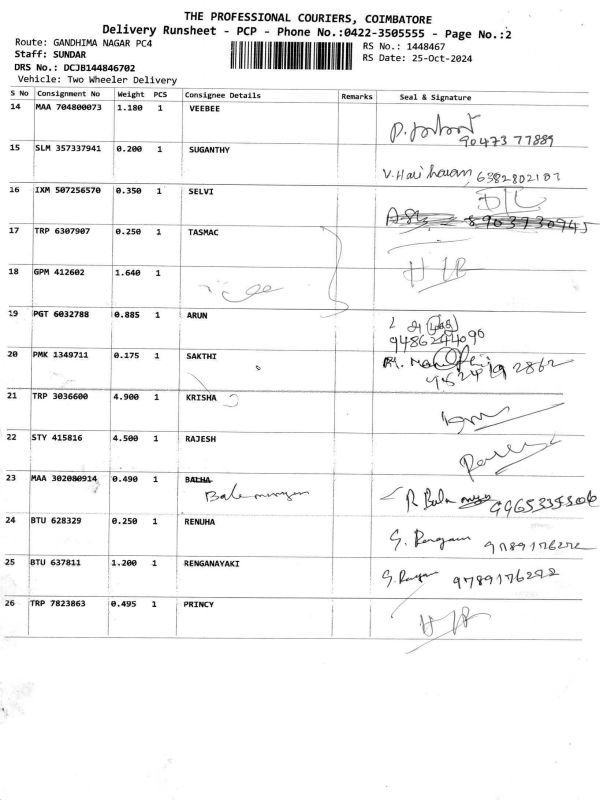 THE PROFESSIONAL COURIERS, COIMBATORE
Delivery Runsheet - PCP - Phone No.:0422-3505555 - Page No.:2
Route: GANDHIMA NAGAR PC4
RS No.: 1448467
Staff: SUNDAR
RS Date: 25-Oct-2024
DRS No.: DCJB144846702
Vehicle: Two Wheeler Delivery
S No Consignment No Weight PCS Consignee Details Remarks Seal & Signature
14 MAA 704800073 1.180 1 VEEBEE
90473 77889
15 SLM 357337941 0.200 1 SUGANTHY
V. Hari haran 6382802107
16 IXM 507256570 0.350 1 SELVI
D/L
8903930945
17 TRP 6307907 0.250 1 TASMAC
18 GPM 412602 1.640 1
19 PGT 6032788 0.885 1 ARUN
9486244090
20 PMK 1349711 0.175 1 SAKTHI
21 TRP 3036600 4.900 1 KRISHA
22 STY 415816 4.500 1 RAJESH
23 MAA 302080914 0.490 1 BALHA
Balamurugan
R Bala
24 BTU 628329 0.250 1 RENUHA
9789176272
25 BTU 637811 1.200 1 RENGANAYAKI
9789176272
26 TRP 7823863 0.495 1 PRINCY